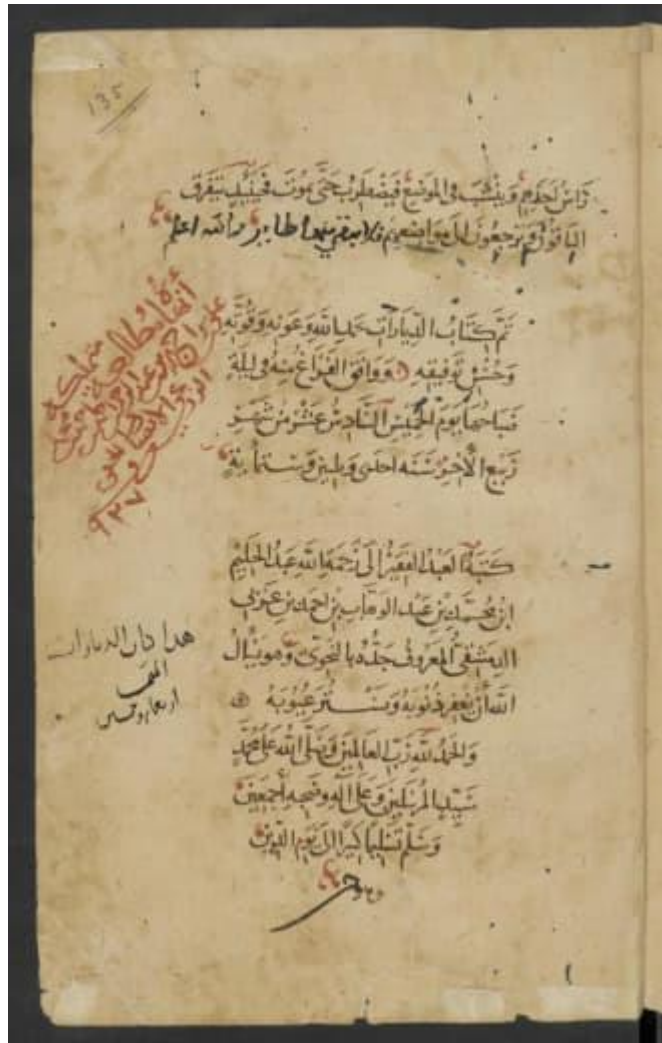 135
رأس أحدهم وينشب في الموضع فيضطرب حتى يموت فحينئذ يتفرق
الباقون ويرجعون إلى مواضعهم فلا يبقى منها طاير والله اعلم
تم كتاب الديارات بحمد الله وعونه وقوته
وحسن توفيقه ووافق الفراغ منه في ليلة
صباحها يوم الخميس السادس عشر من شهر
ربيع الآخر سنه احدى وثلثين وستمأية
كتبه العبد الفقير إلى رحمة الله عبد الحليم
ابن محمد بن عبد الوهاب بن احمد بن
الدمشقي المعروف جده بالنحوي وهو يسأل
الله أن يغفر ذنوبه ويستر عيوبه
والحمد لله رب العالمين وصلى الله على محمد
سيد المرسلين وعلى آله وصحبه أجمعين
وسلم تسليما كثيرا إلى يوم الدين
هذا الديارات
٩٢٧